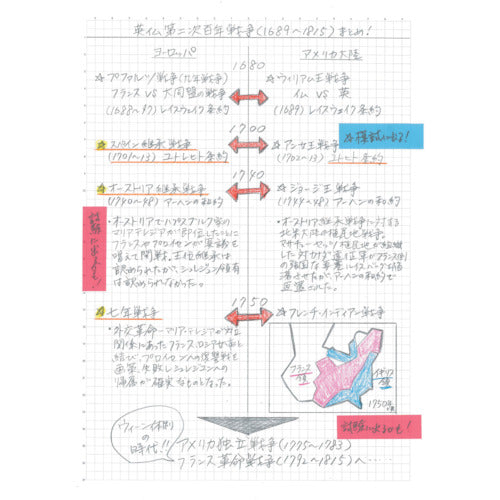 英仏第二次百年戦争(1689~1815)まとめ!
ヨーロッパ
アメリカ大陸
1680
☆プファルツ戦争(九年戦争)
フランス VS 大同盟の戦争
(1688~97)レイスウェイク条約
☆ウィリアム王戦争
仏 VS 英
(1689)レイスウェイク条約
1700
☆スペイン継承戦争
(1701~13)ユトレヒト条約
☆アン女王戦争
(1702~13)ユトレヒト条約
☆模試に出る!
1740
☆オーストリア継承戦争
(1740~48)アーヘンの和約
・オーストリアでハプスブルク家の
マリアテレジアが即位したことに
フランスやプロイセンが異議を
唱えて開戦。王位継承は
認められたが、シュレジエン領有
は認められなかった。
☆ジョージ王戦争
(1744~48)アーヘンの和約
・オーストリア継承戦争に対する
北米大陸の植民地戦争。
マサチューセッツ植民地が組織
した
返還された。
試験に出るかも!
1750
☆七年戦争
・外交革命―マリアテレジアが対立
関係にあったフランス、ロシアが手を
結び、プロイセンへの復讐戦を
画策。失敗しシュレジエンへの
帰属が確実なものとなった。
☆フレンチ・インディアン戦争
フランス
領
イギリス
領
1750年
試験に出るかも!
ウィーン体制
の
時代!!
アメリカ独立戦争(1775~1783)
フランス革命戦争(1792~1815)へ・・・・